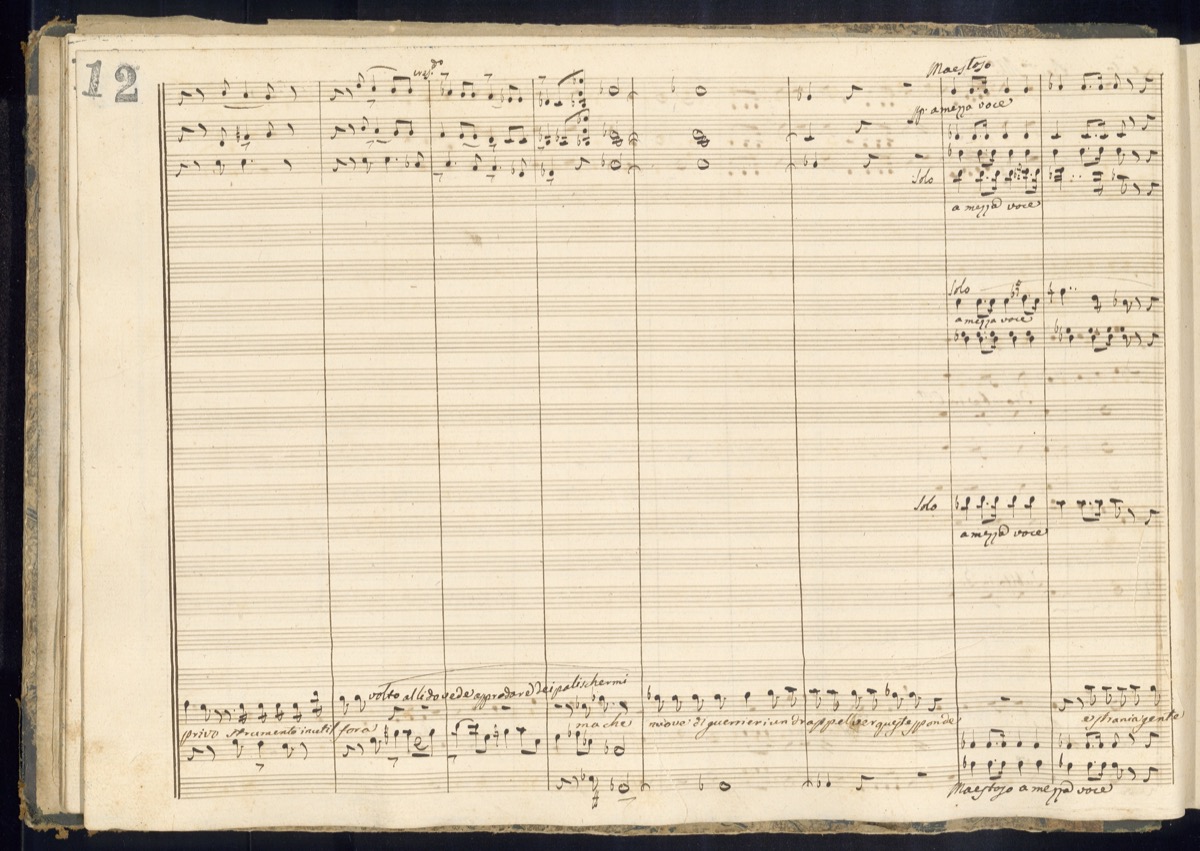 12
Maestoso
a mezza voce
Solo
a mezza voce
Solo
a mezza voce
Solo
a mezza voce
volto al lido vede approdare dei palischermi
privo strumento inutil fora
ma che
nuovo di guerrieri un drappel ver queste sponde
estrania gente
Maestoso a mezza voce